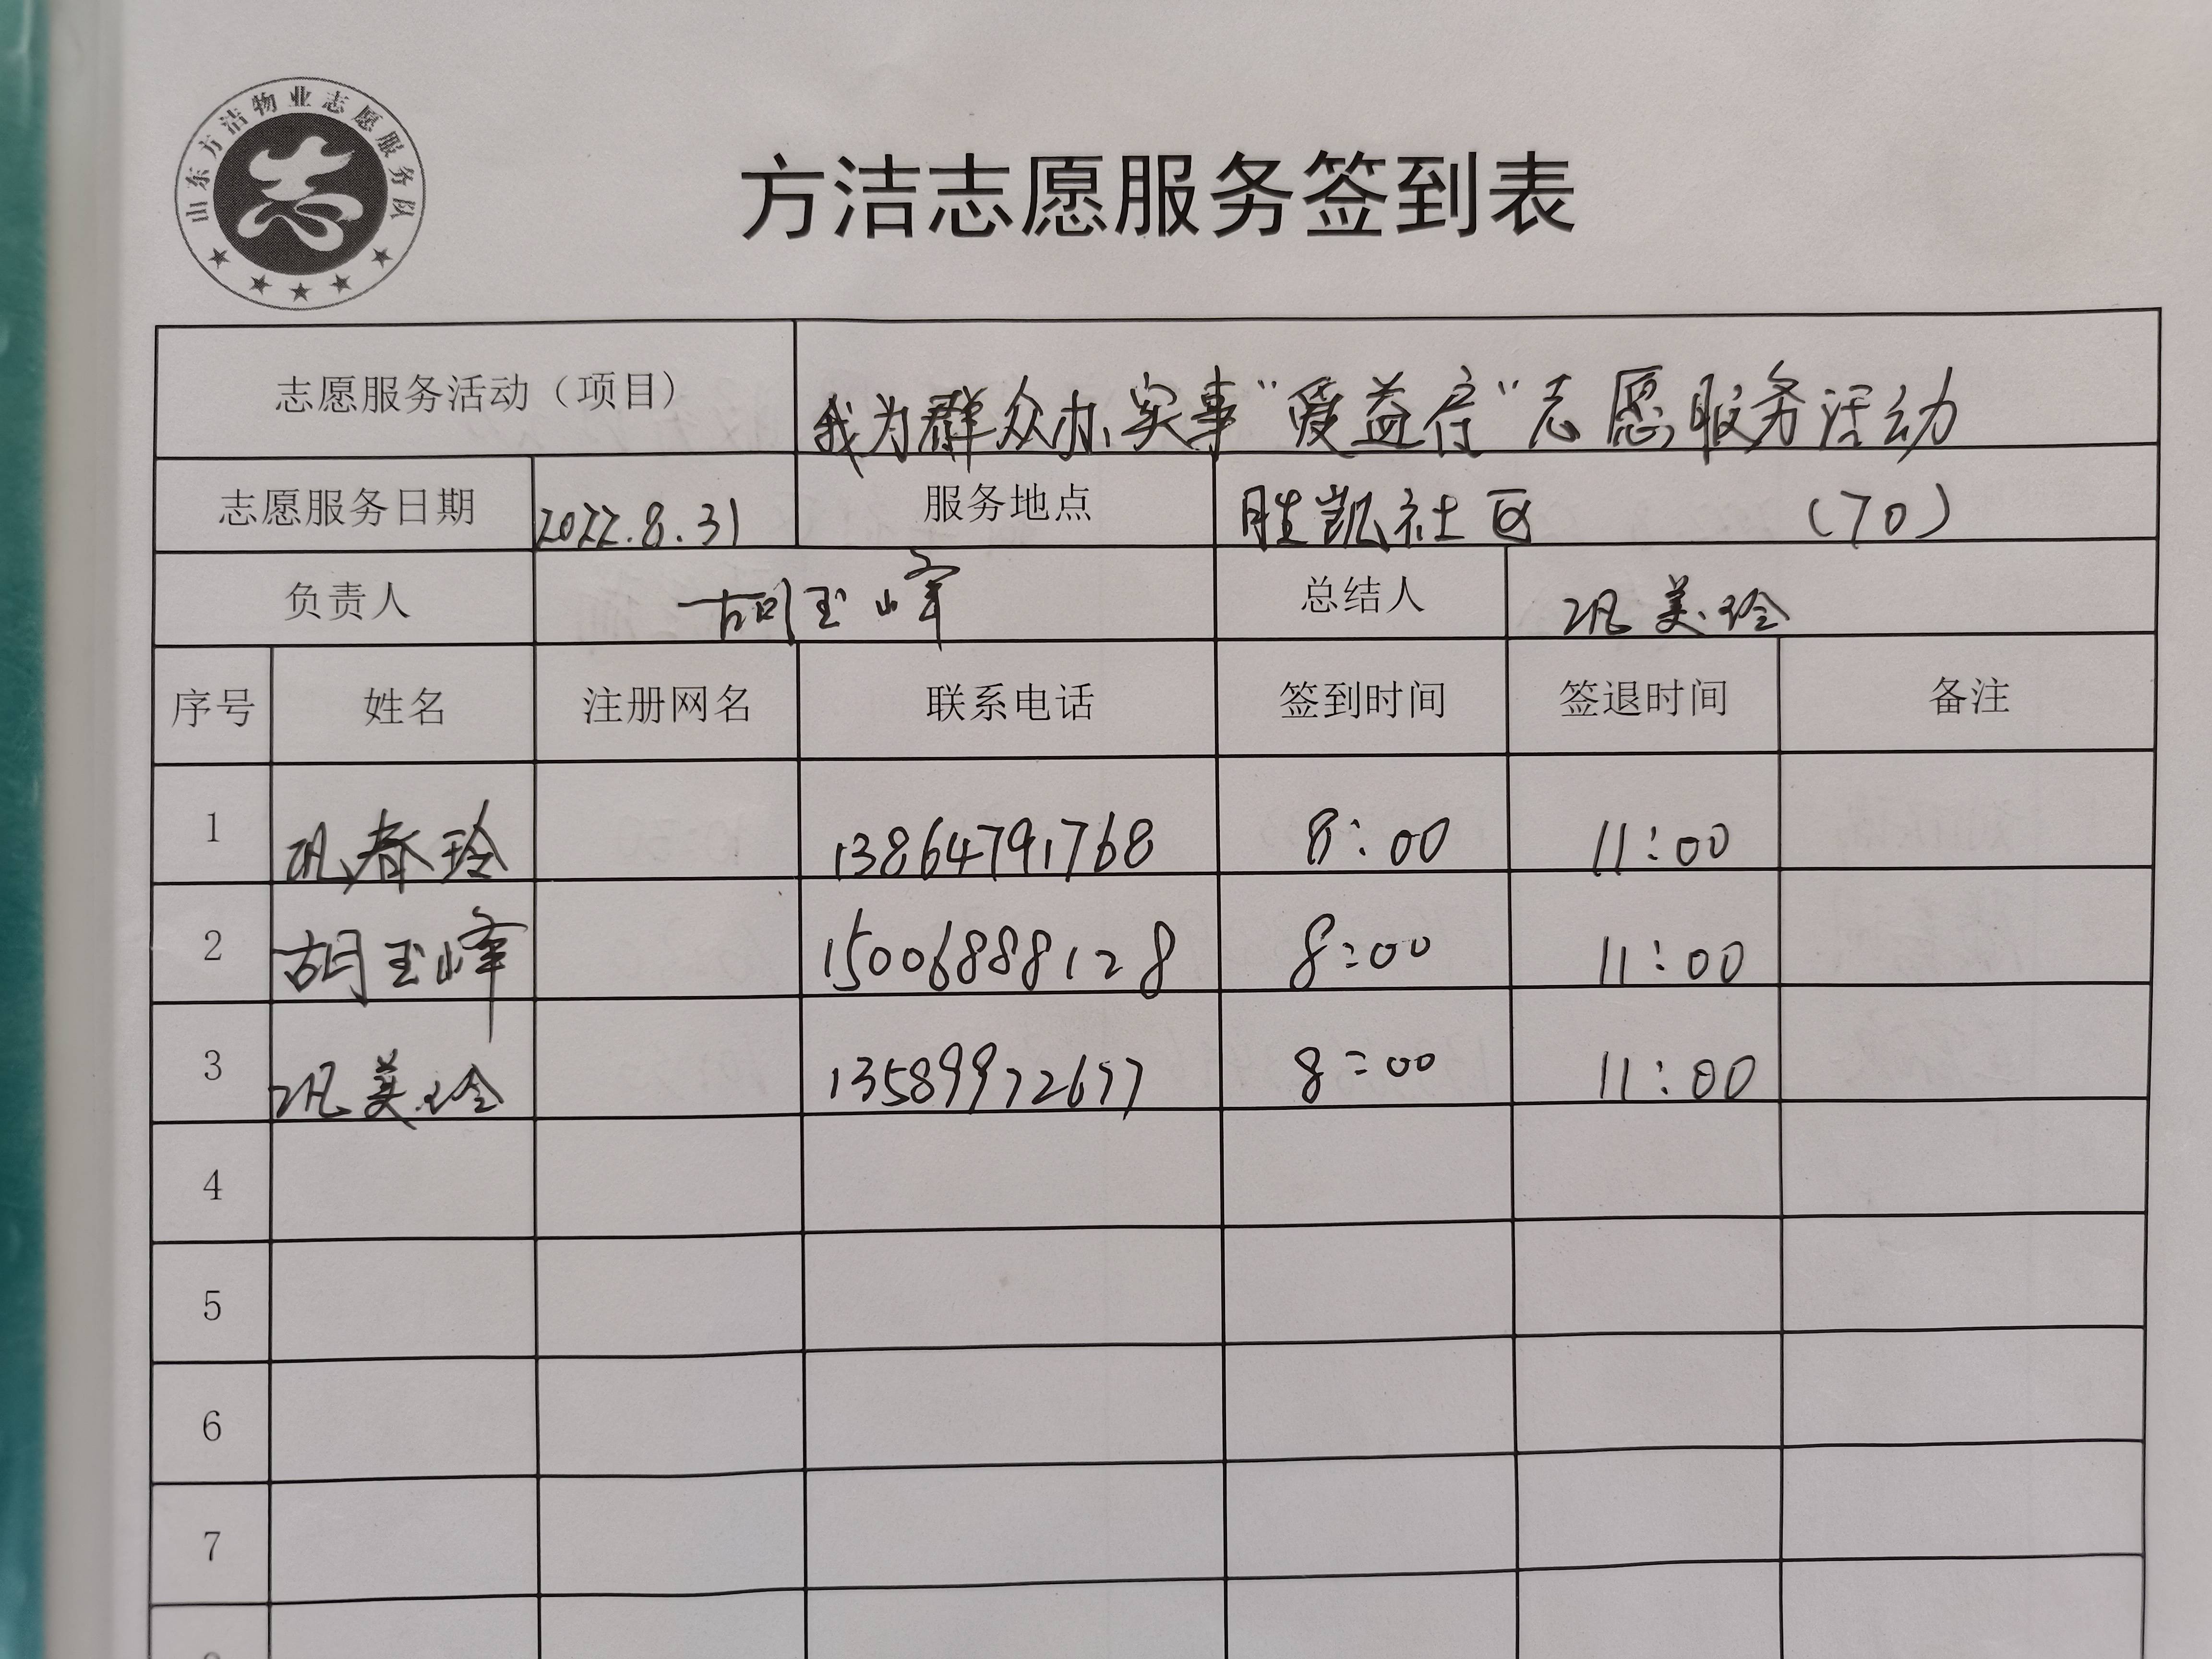 山东方洁物业志愿服务队
方洁志愿服务签到表
志愿服务活动（项目） 我为群众办实事“爱益行”志愿服务活动
志愿服务日期 2022.8.31 服务地点 胜凯社区 （70）
负责人 胡玉峰 总结人 巩美玲
序号 姓名 注册网名 联系电话 签到时间 签退时间 备注
1 巩春玲 13864791768 8:00 11:00
2 胡玉峰 15006888128 8:00 11:00
3 巩美玲 13589972677 8:00 11:00
4
5
6
7